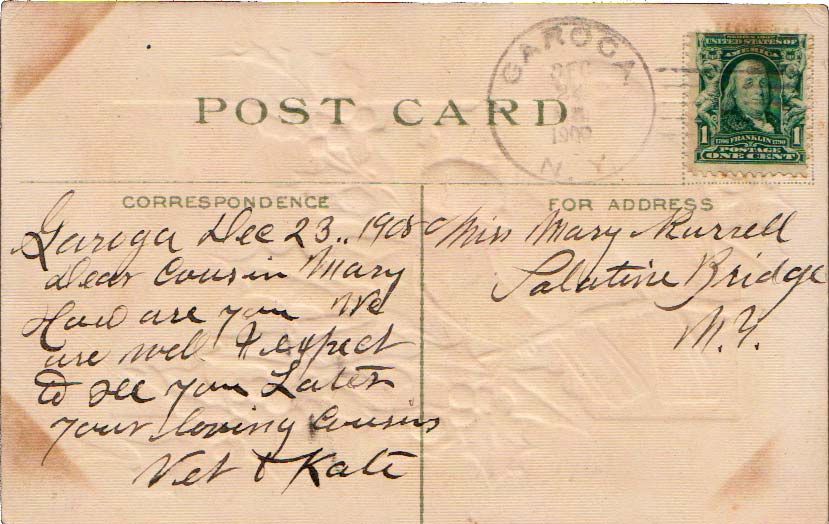 POST CARD
GAROGA
DEC
N.Y.
SERIES 1902
UNITED STATES OF
AMERICA
1 1706 FRANKLIN 1790 1
POSTAGE
ONE CENT
CORRESPONDENCE
Garoga Dec 23.. 1908
Dear Cousin Mary
How are you We
are well & expect
to see you Later
your loving Cousins
Vet & Kate
FOR ADDRESS
Miss Mary
Palatine Bridge
N.Y.